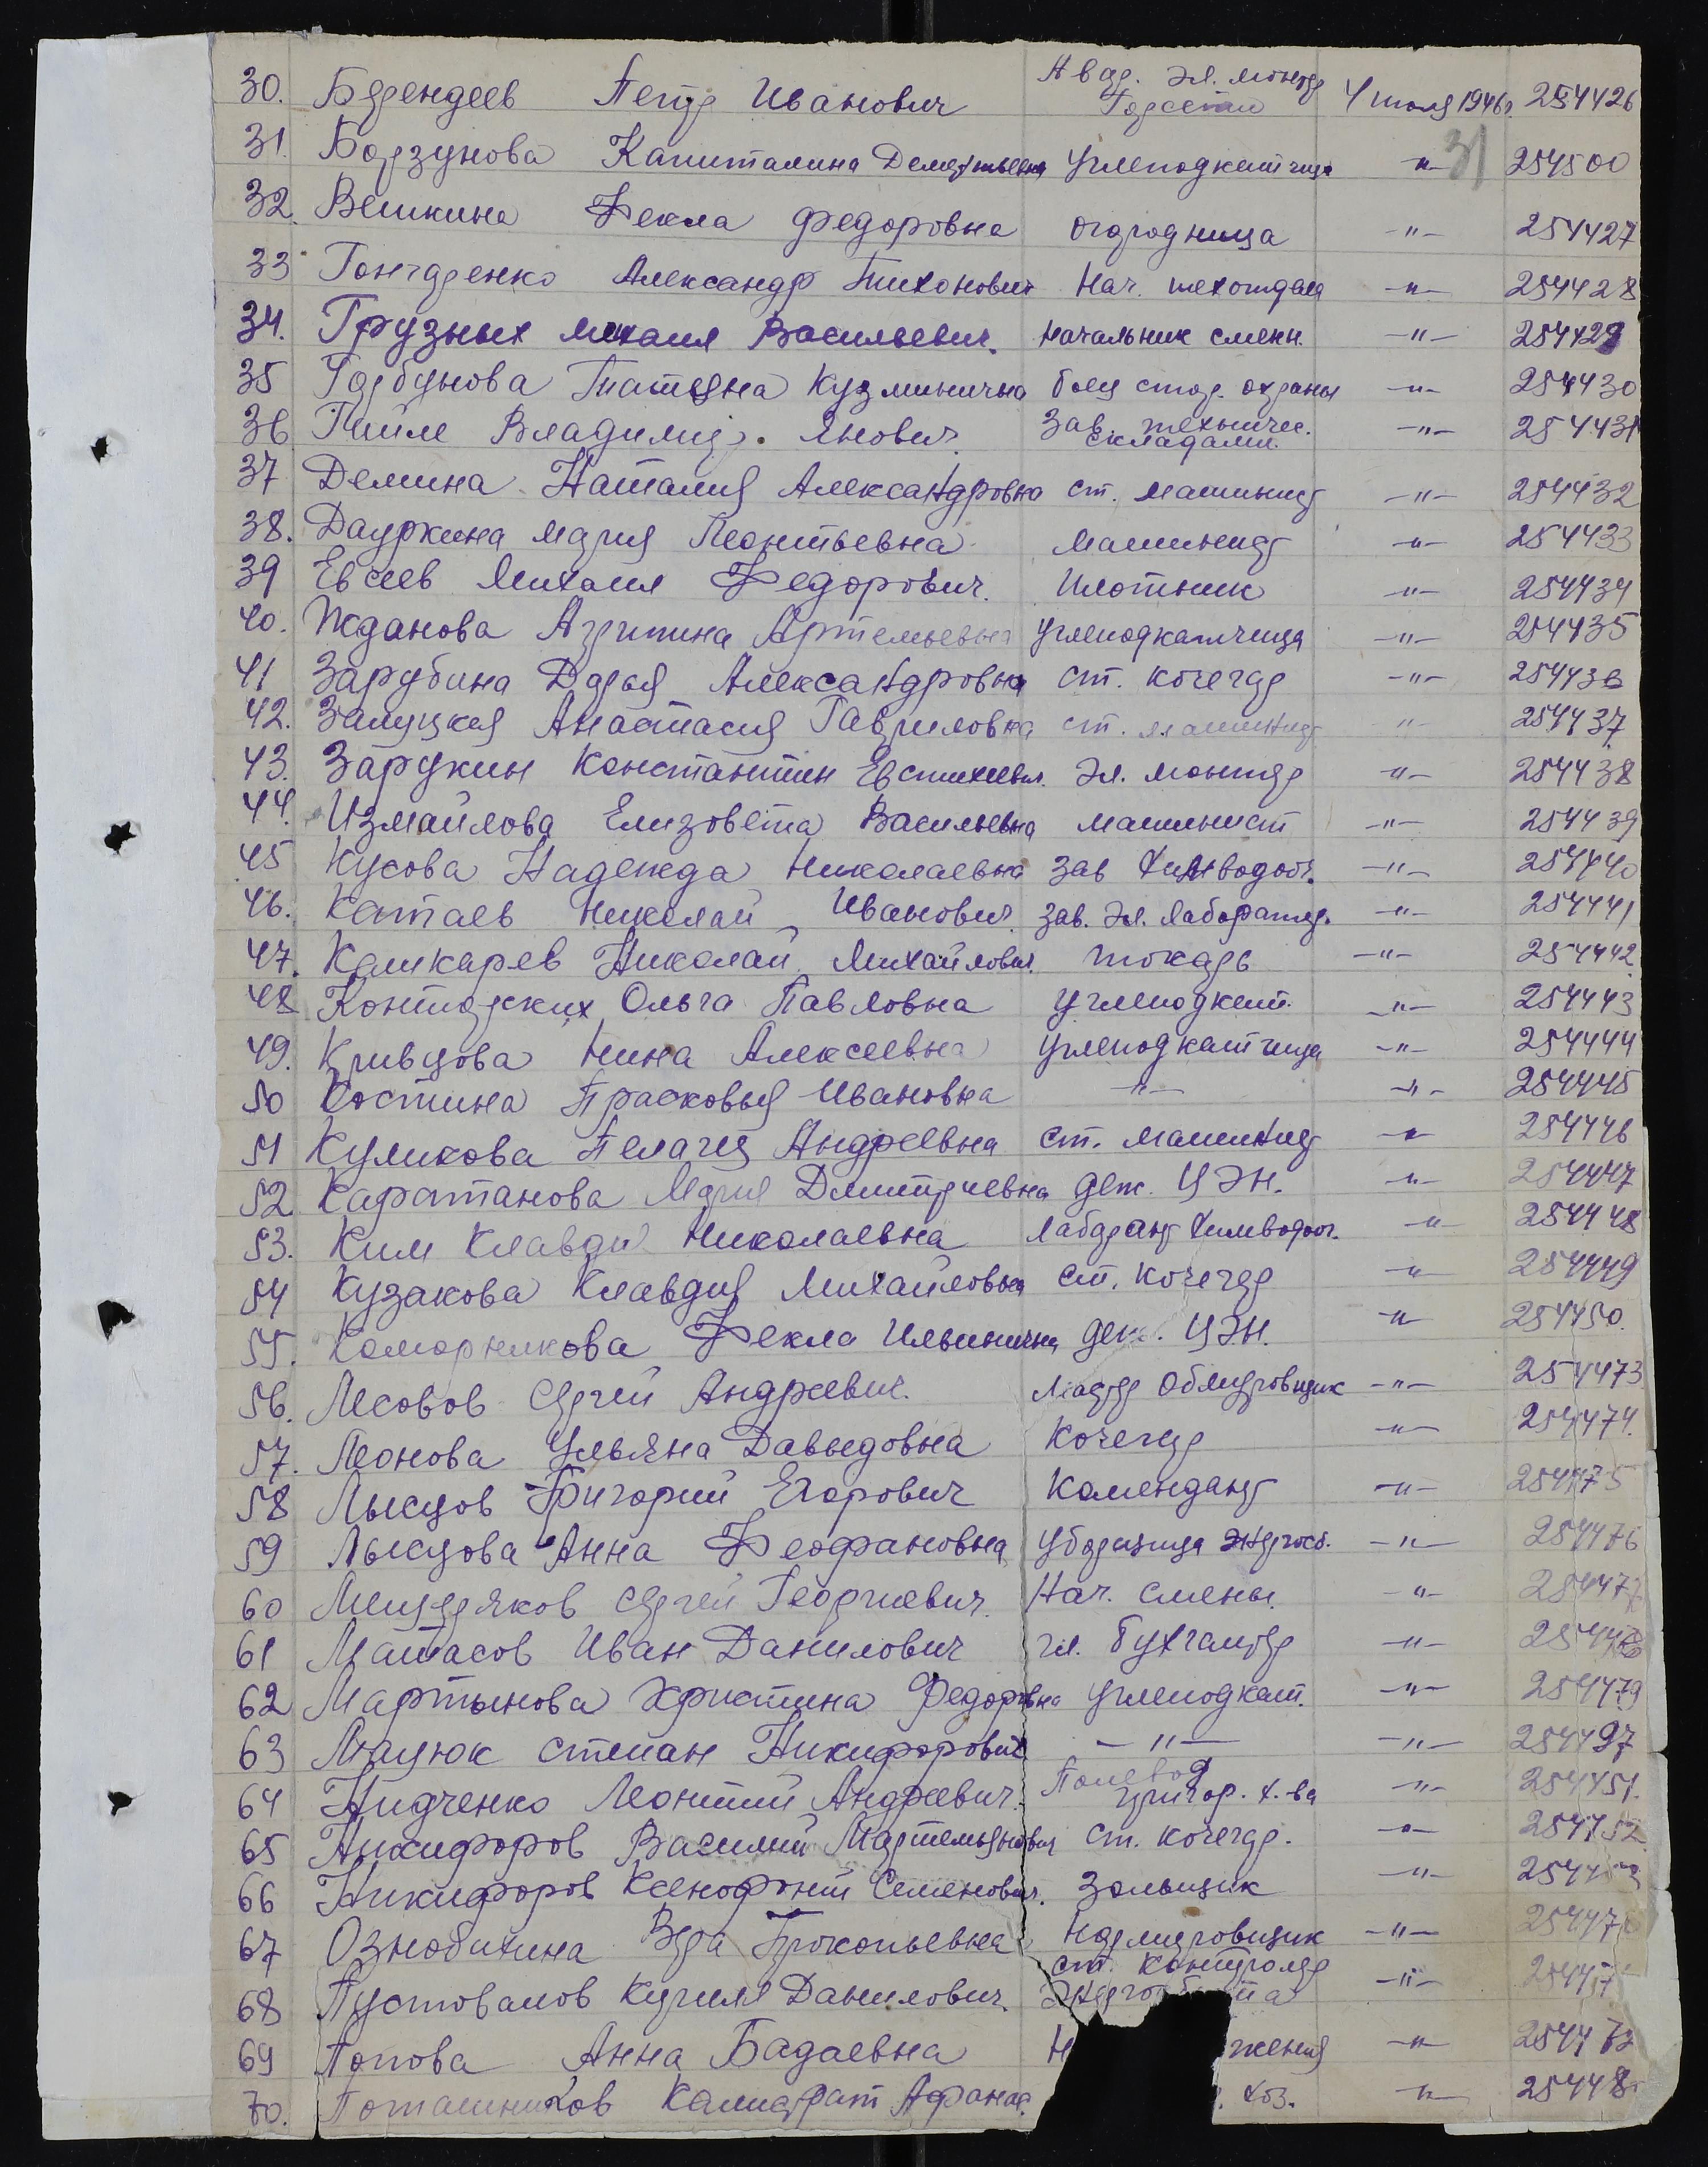 30. Берендеев Петр Иванович Авар. эл. монтер Горсети 4 июля 1946г. 254426
31
31. Борзунова Капиталина Дементьевна углеподкатчица -"- 254500
32. Вешкина Фекла Федоровна огородница -"- 254427
33 Гончаренко Александр Тихонович Нач. техотдела -"- 254428
34. Грузных Михаил Васильевич. Начальник смены. -"- 254429
35 Горбунова Татьяна Кузминична боец стор. охраны -"- 254430
36 Гайле Владимир. Янович Зав. техничес. складами. -"- 254431
37 Демина Наталия Александровна ст. машинист -"- 254432
38. Дауркина Мария Леонтьевна машинист -"- 254433
39 Евсеев Михаил Федорович. Плотник -"- 254434
40. Жданова Агрипина Артемьевна углеподкатчица -"- 254435
41 Зарубина Дарья Александровна ст. кочегар -"- 254436
42. Залуцкая Анастасия Гавриловна ст. машинист -"- 254437
43. Зарукин Константин Евстихеевич. Эл. монтер -"- 254438
44. Измайлова Елизовета Васильевна машинист -"- 254439
45 Кусова Надежда Николаевна Зав Химводооч. -"- 254440
46. Катаев Николай Иванович Зав. Эл. Лаборатор. -"- 254441
47. Кашкарев Николай Михайлович токарь -"- 254442
48 Конторских Ольга Павловна углеподкат. -"- 254443
49. Кривцова Нина Алексеевна углеподкатчица -"- 254444
50 Костина Прасковья Ивановна -"- -"- 254445
51 Куликова Пелагея Андреевна ст. машинист -"- 254446
52 Каратанова Мария Дмитриевна деж. ЦЭН. -"- 254447
53. Ким Клавдия Николаевна Лаборант Химводооч. -"- 254448
54 Кузакова Клавдия Михайловна ст. кочегар -"- 254449
55. Коморникова Фекла Ильинична деж. ЦЭН. -"- 254450.
56. Лесовов Сергей Андреевич. Маляр Облицровщик -"- 254473
57. Леонова Ульяна Давыдовна Кочегар -"- 254474.
58 Лысцов Григорий Егорович Комендант -"- 254475
59 Лысцова Анна Феофановна Уборщица Энергосб. -"- 254476
60 Мещеряков Сергей Георгиевич. Нач. смены. -"- 254477
61 Матасов Иван Данилович гл. бухгалтер -"-
62 Мартынова Христина Федоровна углеподкат. -"- 254479
63 Мацюк Степан Никифорович -"- -"- 254497
64 Нидченко Леонтий Андреевич. Полевод Пригор. х-ва -"- 254451.
65 Никифоров Василий Мартемьянович ст. кочегар. -"- 254452
66 Никифоров Ксенофонт Семенович. Зольщик -"-
67 Ознобихина Вера Прокопьевна Нормировщик -"-
68 Пустовалов Кирилл Данилович. ст. контролер -"-
69 Попова Анна Бадаевна Н жения -"-
70. Поташников Калистрат Афанас. . хоз. -"- 25448